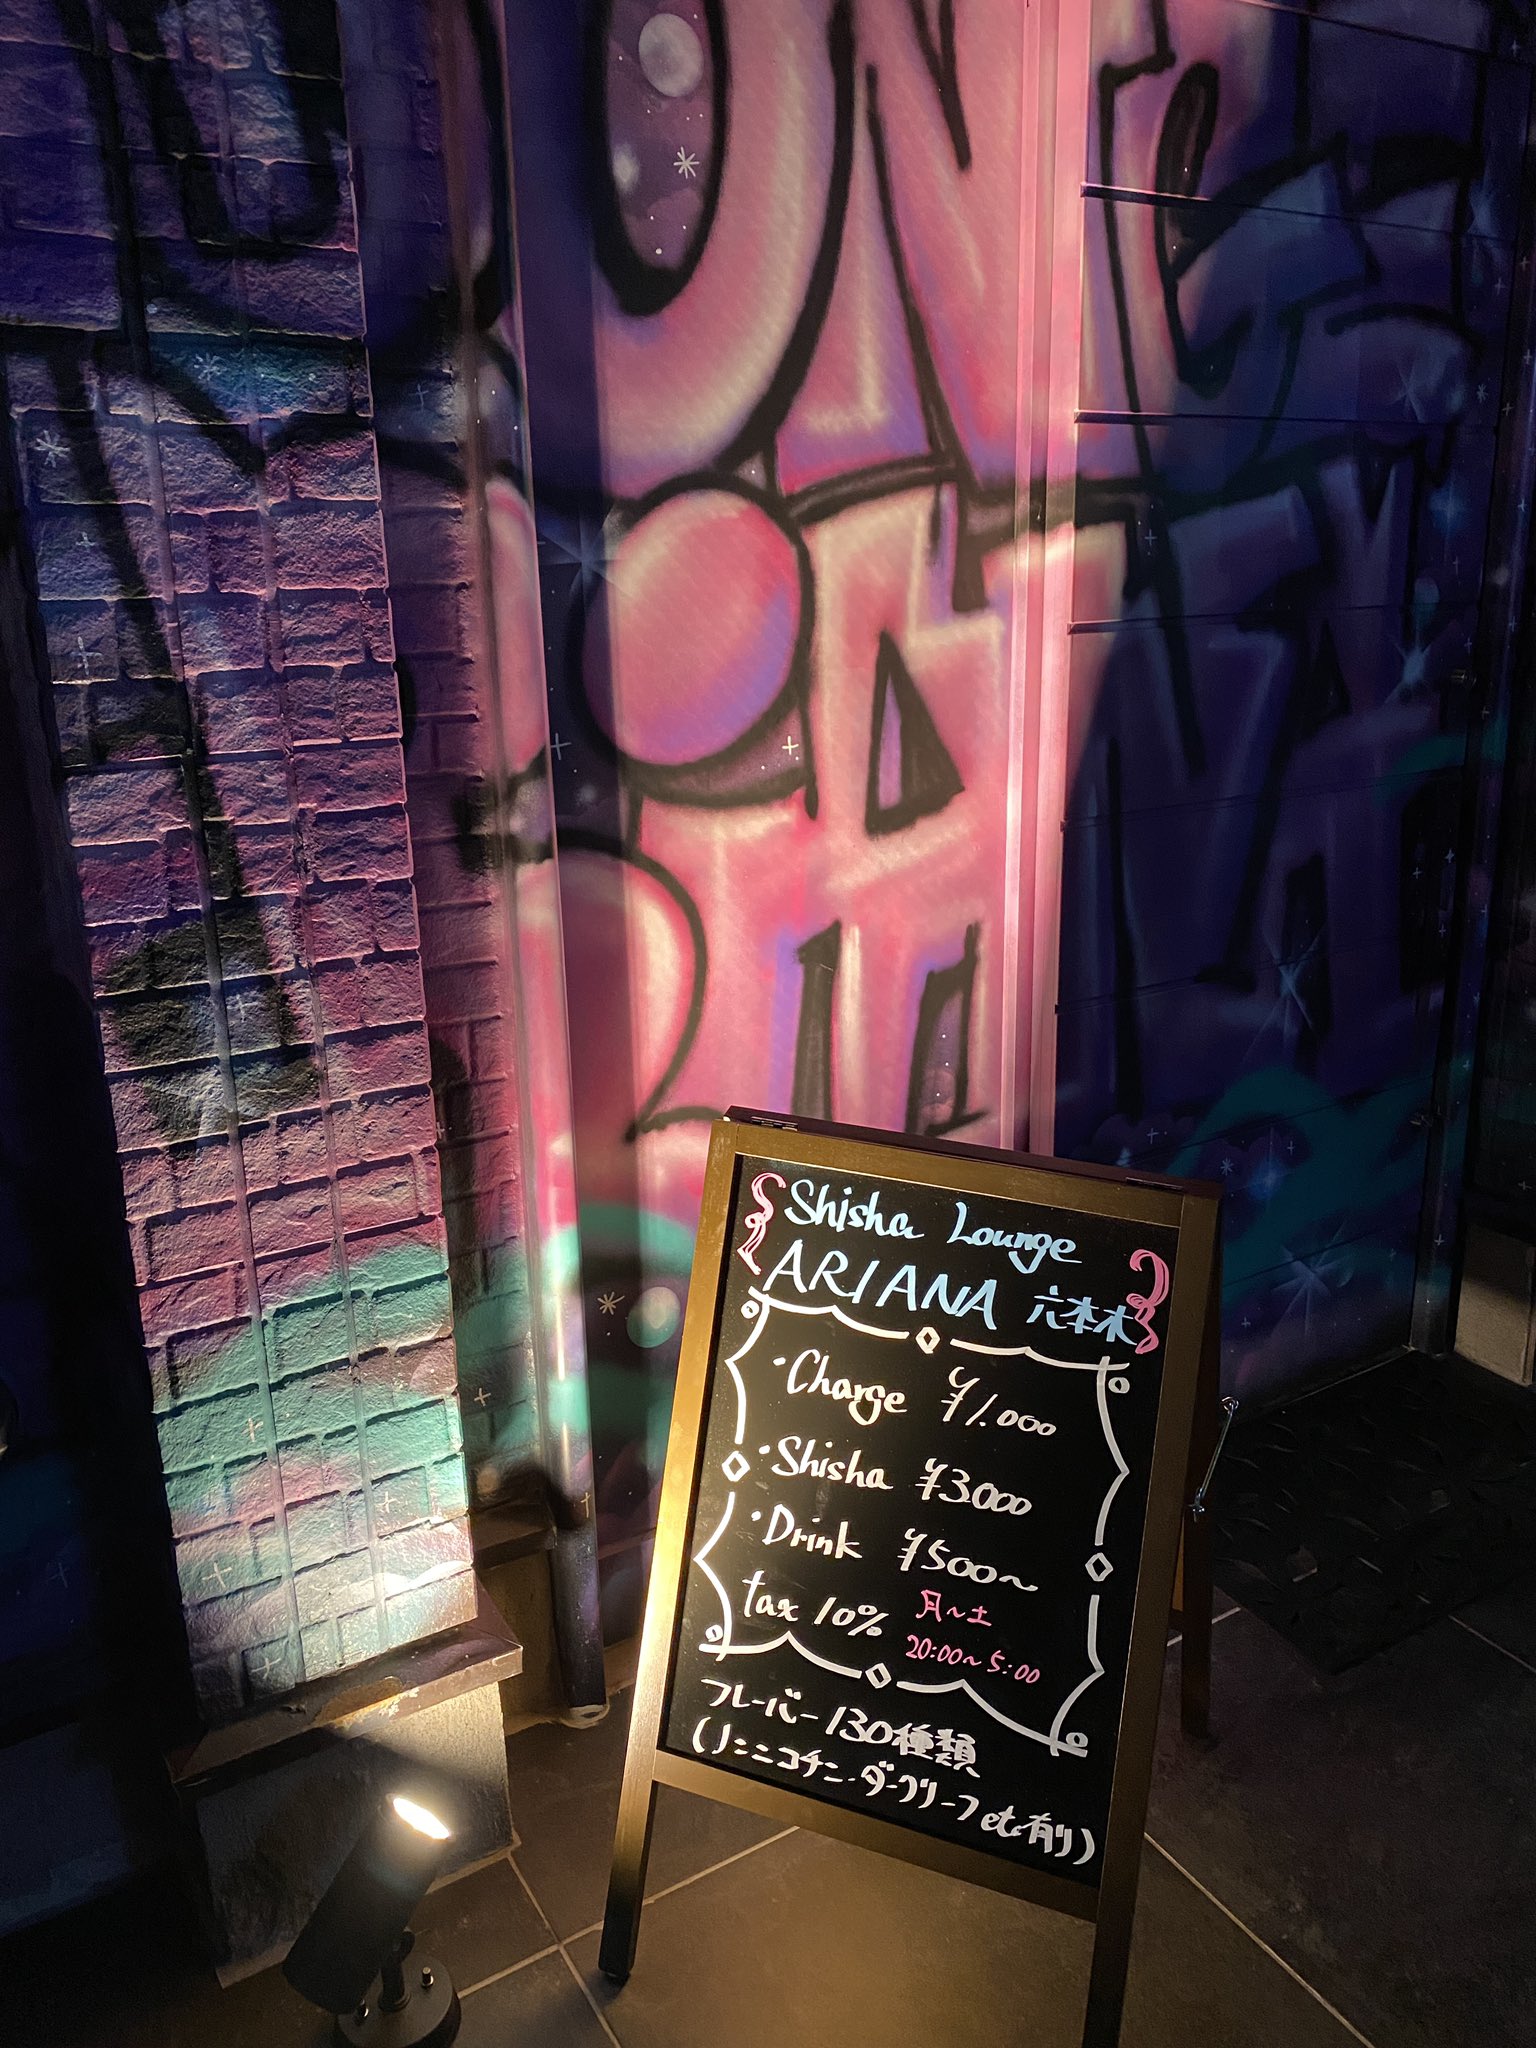 Shisha Lounge
ARIANA 六本木
・Charge ¥1.000
・Shisha ¥3000
・Drink ¥500〜
tax 10% 月〜土
20:00〜5:00
フレーバー130種類
(ノンニコチン・ダークリーフetc有り)